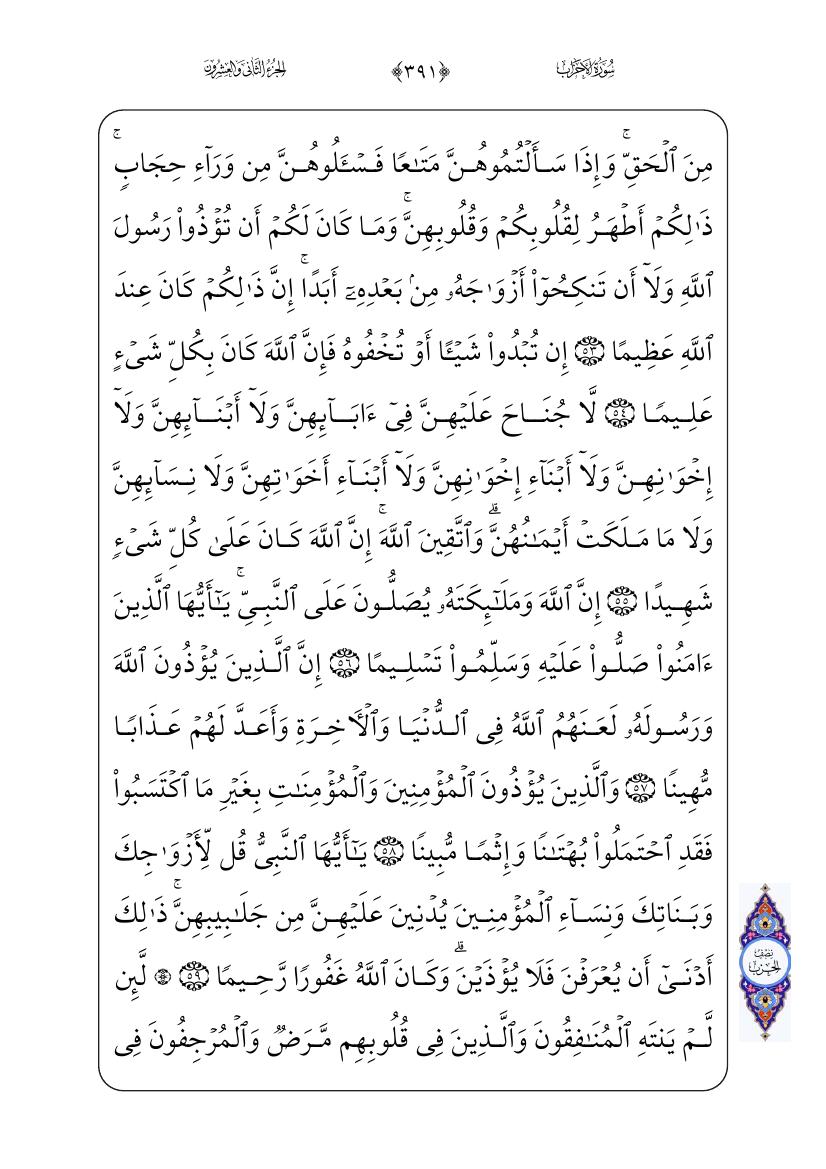 سُورَةُ الأَحْزَابِ ﴿٣٩١﴾ الجُزْءُ الثَّانِي وَالعِشْرُونَ
مِنَ ٱلۡحَقِّۚ وَإِذَا سَأَلۡتُمُوهُنَّ مَتَٰعٗا فَسۡـَٔلُوهُنَّ مِن وَرَآءِ حِجَابٖۚ
ذَٰلِكُمۡ أَطۡهَرُ لِقُلُوبِكُمۡ وَقُلُوبِهِنَّۚ وَمَا كَانَ لَكُمۡ أَن تُؤۡذُواْ رَسُولَ
ٱللَّهِ وَلَآ أَن تَنكِحُوٓاْ أَزۡوَٰجَهُۥ مِنۢ بَعۡدِهِۦٓ أَبَدًاۚ إِنَّ ذَٰلِكُمۡ كَانَ عِندَ
ٱللَّهِ عَظِيمًا ٥٣ إِن تُبۡدُواْ شَيۡـًٔا أَوۡ تُخۡفُوهُ فَإِنَّ ٱللَّهَ كَانَ بِكُلِّ شَيۡءٍ
عَلِيمٗا ٥٤ لَّا جُنَاحَ عَلَيۡهِنَّ فِيٓ ءَابَآئِهِنَّ وَلَآ أَبۡنَآئِهِنَّ وَلَآ
إِخۡوَٰنِهِنَّ وَلَآ أَبۡنَآءِ إِخۡوَٰنِهِنَّ وَلَآ أَبۡنَآءِ أَخَوَٰتِهِنَّ وَلَا نِسَآئِهِنَّ
وَلَا مَا مَلَكَتۡ أَيۡمَٰنُهُنَّۗ وَٱتَّقِينَ ٱللَّهَۚ إِنَّ ٱللَّهَ كَانَ عَلَىٰ كُلِّ شَيۡءٖ
شَهِيدًا ٥٥ إِنَّ ٱللَّهَ وَمَلَٰٓئِكَتَهُۥ يُصَلُّونَ عَلَى ٱلنَّبِيِّۚ يَٰٓأَيُّهَا ٱلَّذِينَ
ءَامَنُواْ صَلُّواْ عَلَيۡهِ وَسَلِّمُواْ تَسۡلِيمًا ٥٦ إِنَّ ٱلَّذِينَ يُؤۡذُونَ ٱللَّهَ
وَرَسُولَهُۥ لَعَنَهُمُ ٱللَّهُ فِي ٱلدُّنۡيَا وَٱلۡأٓخِرَةِ وَأَعَدَّ لَهُمۡ عَذَابٗا
مُّهِينٗا ٥٧ وَٱلَّذِينَ يُؤۡذُونَ ٱلۡمُؤۡمِنِينَ وَٱلۡمُؤۡمِنَٰتِ بِغَيۡرِ مَا ٱكۡتَسَبُواْ
فَقَدِ ٱحۡتَمَلُواْ بُهۡتَٰنٗا وَإِثۡمٗا مُّبِينٗا ٥٨ يَٰٓأَيُّهَا ٱلنَّبِيُّ قُل لِّأَزۡوَٰجِكَ
وَبَنَاتِكَ وَنِسَآءِ ٱلۡمُؤۡمِنِينَ يُدۡنِينَ عَلَيۡهِنَّ مِن جَلَٰبِيبِهِنَّۚ ذَٰلِكَ
أَدۡنَىٰٓ أَن يُعۡرَفۡنَ فَلَا يُؤۡذَيۡنَۗ وَكَانَ ٱللَّهُ غَفُورٗا رَّحِيمٗا ٥٩ ۞ لَّئِن
لَّمۡ يَنتَهِ ٱلۡمُنَٰفِقُونَ وَٱلَّذِينَ فِي قُلُوبِهِم مَّرَضٞ وَٱلۡمُرۡجِفُونَ فِي
نِصْفُ
الحِزْبِ